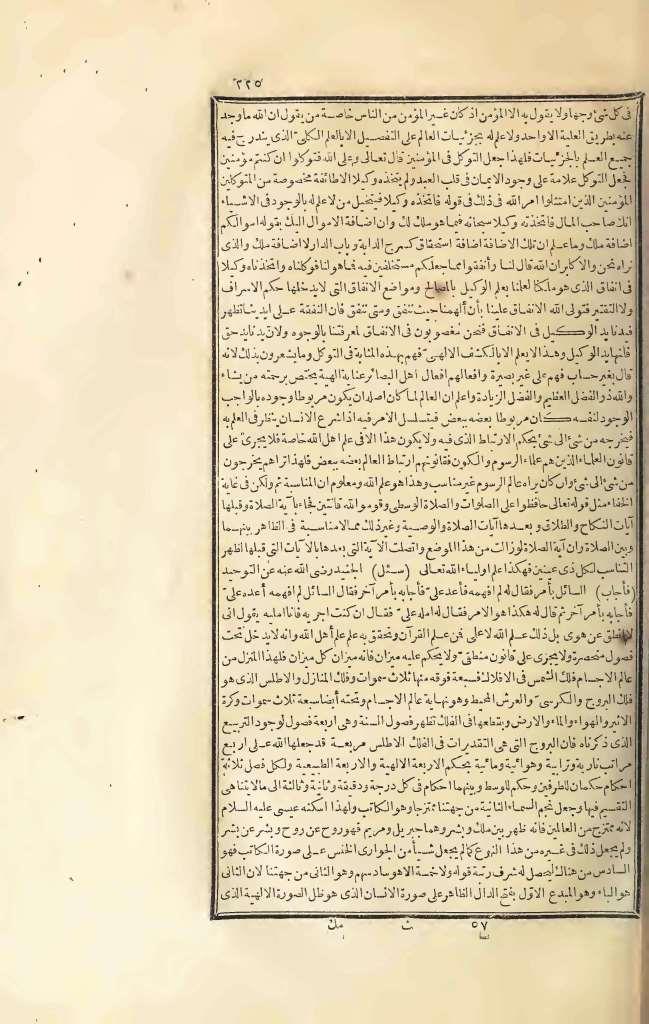 ٢٢٥
فى كل شئ وجها ولا يقول به الا المؤمن اذ كان غير المؤمن من الناس خاصة من يقول ان الله ما وجد
عنه بطريق العلية الا واحد ولا علم له بجزئيات العالم على التفصيل الا بالعلم الكلى الذى يندرج فيه
جميع العلم بالجزئيات فلهذا جعل التوكل فى المؤمنين قال تعالى وعلى الله فتوكلوا ان كنتم مؤمنين
فجعل التوكل علامة على وجود الايمان فى قلب العبد ولم يتخذه وكيلا الا طائفة مخصوصة من المتوكلين
المؤمنين الذين امتثلوا امر الله فى ذلك فى قوله فاتخذه وكيلا فيتخيل من لا علم له بالوجود فى الاشياء
انك صاحب المال فاتخذته وكيلا سبحانه فيما هو ملك لك وان اضافة الاموال اليك بقوله اموالكم
اضافة ملك وما علم ان تلك الاضافة اضافة استحقاق كسرج الدابة وباب الدار لا اضافة ملك والذى
نراه نحن والاكابر ان الله قال لنا وأنفقوا مما جعلكم مستخلفين فيه فما هو لنا فوكلناه واتخذناه وكيلا
فى انفاق الذى هو ملكا لعلمنا بعلم الوكيل بالمصالح ومواضع الانفاق التى لا يدخلها حكم الاسراف
ولا التقتير فتولى الله الانفاق علينا بأن ألهمنا حيث ننفق ومتى ننفق فان النفقة على ايدينا تظهر
فيدنا يد الوكيل فى الانفاق فنحن معصوبون فى الانفاق لمعرفتنا بالوجوه ولان يدنا يد حق
فانها يد الوكيل وهذا لا يعلم الا بالكشف الالهى فهم بهذه المثابة فى التوكل وما يشعرون بذلك لانه
قال بغير حساب فهم على غير بصيرة وافعالهم افعال اهل البصائر عناية الهية يختص برحمته من يشاء
والله ذو الفضل العظيم والفضل الزيادة واعلم ان العالم لما كان اصله ان يكون مربوطا وجوده بالواجب
الوجود لنفسه كان مربوطا بعضه ببعض فيتسلسل الامر فيه اذا شرع الانسان ينظر فى العلم به
فيخرجه من شئ الى شئ بحكم الارتباط الذى فيه ولا يكون هذا الا فى علم اهل الله خاصة فلا يجرى على
قانون العلماء الذين هم علماء الرسوم والكون فقانونهم ارتباط العالم بعضه ببعض فلهذا تراهم يخرجون
من شئ الى شئ وان كان يراه عالم الرسوم غير مناسب وهذا هو علم الله ومعلوم ان المناسبة ثم ولكن فى غاية
الخفاء مثل قوله تعالى حافظوا على الصلوات والصلاة الوسطى وقوموا لله قانتين فجاء بآية الصلاة وقبلها
آيات النكاح والطلاق وبعدها آيات الصلاة والوصية وغير ذلك مما لا مناسبة فى الظاهر بينهما
وبين الصلاة وان آية الصلاة لو زالت من هذا الموضع واتصلت الآية التى بعدها بالآيات التى قبلها لظهر
التناسب لكل ذى عينين فهكذا علم اولياء الله تعالى (سئل) الجنيد رضى الله عنه عن التوحيد
(فأجاب) السائل بأمر فقال له لم افهمه فأعد علىّ فأجابه بأمر آخر فقال السائل لم افهمه أعده علىّ
فأجابه بأمر آخر ثم قال له هكذا هو الامر فقال له امله علىّ فقال ان كنت اجريه فانا امليه يقول انى
لا انطق عن هوى بل ذلك علم الله لا علمى فمن علم القرآن وتحقق به علم علم أهل الله وانه لا يدخل تحت
فصول منحصرة ولا يجرى على قانون منطقى ولا يحكم عليه ميزان فانه ميزان كل ميزان فلهذا المنزل من
عالم الاجسام فلك الشمس فى الافلاك فسبعة فوقه منها ثلاث سموات وفلك المنازل والاطلس الذى هو
فلك البروج والكرسى والعرش المحيط وهو نهاية عالم الاجسام وتحته أيضا سبعة ثلاث سموات وكرة
الاثير والهواء والماء والارض وبقطعها فى الفلك تظهر فصول السنة وهى اربعة فصول لوجود التربيع
الذى ذكرناه فان البروج التى هى التقديرات فى الفلك الاطلس مربعة قد جعلها الله على اربع
مراتب نارية وترابية وهوائية ومائية بحكم الاربعة الالهية والاربعة الطبيعية ولكل فصل ثلاثة
احكام حكمان للطرفين وحكم للوسط وبينهما احكام فى كل درجة ودقيقة وثانية وثالثة الى ما لا يتناهى
التقسيم فيها وجعل نجم السماء الثانية من جهتنا ممتزجا وهو الكاتب ولهذا اسكنه عيسى عليه السلام
لانه ممتزج من العالمين فانه ظهر بين ملك وبشر وهما جبريل ومريم فهو روح عن روح وبشر عن بشر
ولم يجعل ذلك فى غيره من هذا النوع كما لم يجعل شيأ من الجوارى الخنس على صورة الكاتب فهو
السادس من هنالك ليحصل له شرف رتبة قوله ولا خمسة الا هو سادسهم وهو الثانى من جهتنا لان الثانى
هو الباء وهو المبدع الاول بفتح الدال الظاهر على صورة الانسان الذى هو ظل الصورة الالهية الذى
٥٧ ث مك